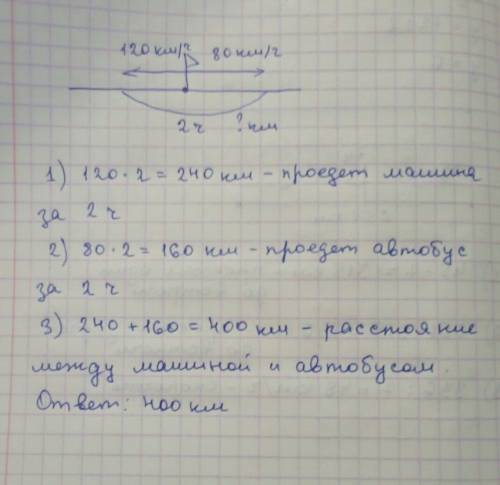 120 км/ч 80 км/ч
2 ч ? км
1) 120 · 2 = 240 км - проедет машина
за 2 ч
2) 80 · 2 = 160 км - проедет автобус
за 2 ч
3) 240 + 160 = 400 км - расстояние
между машиной и автобусом.
Ответ: 400 км